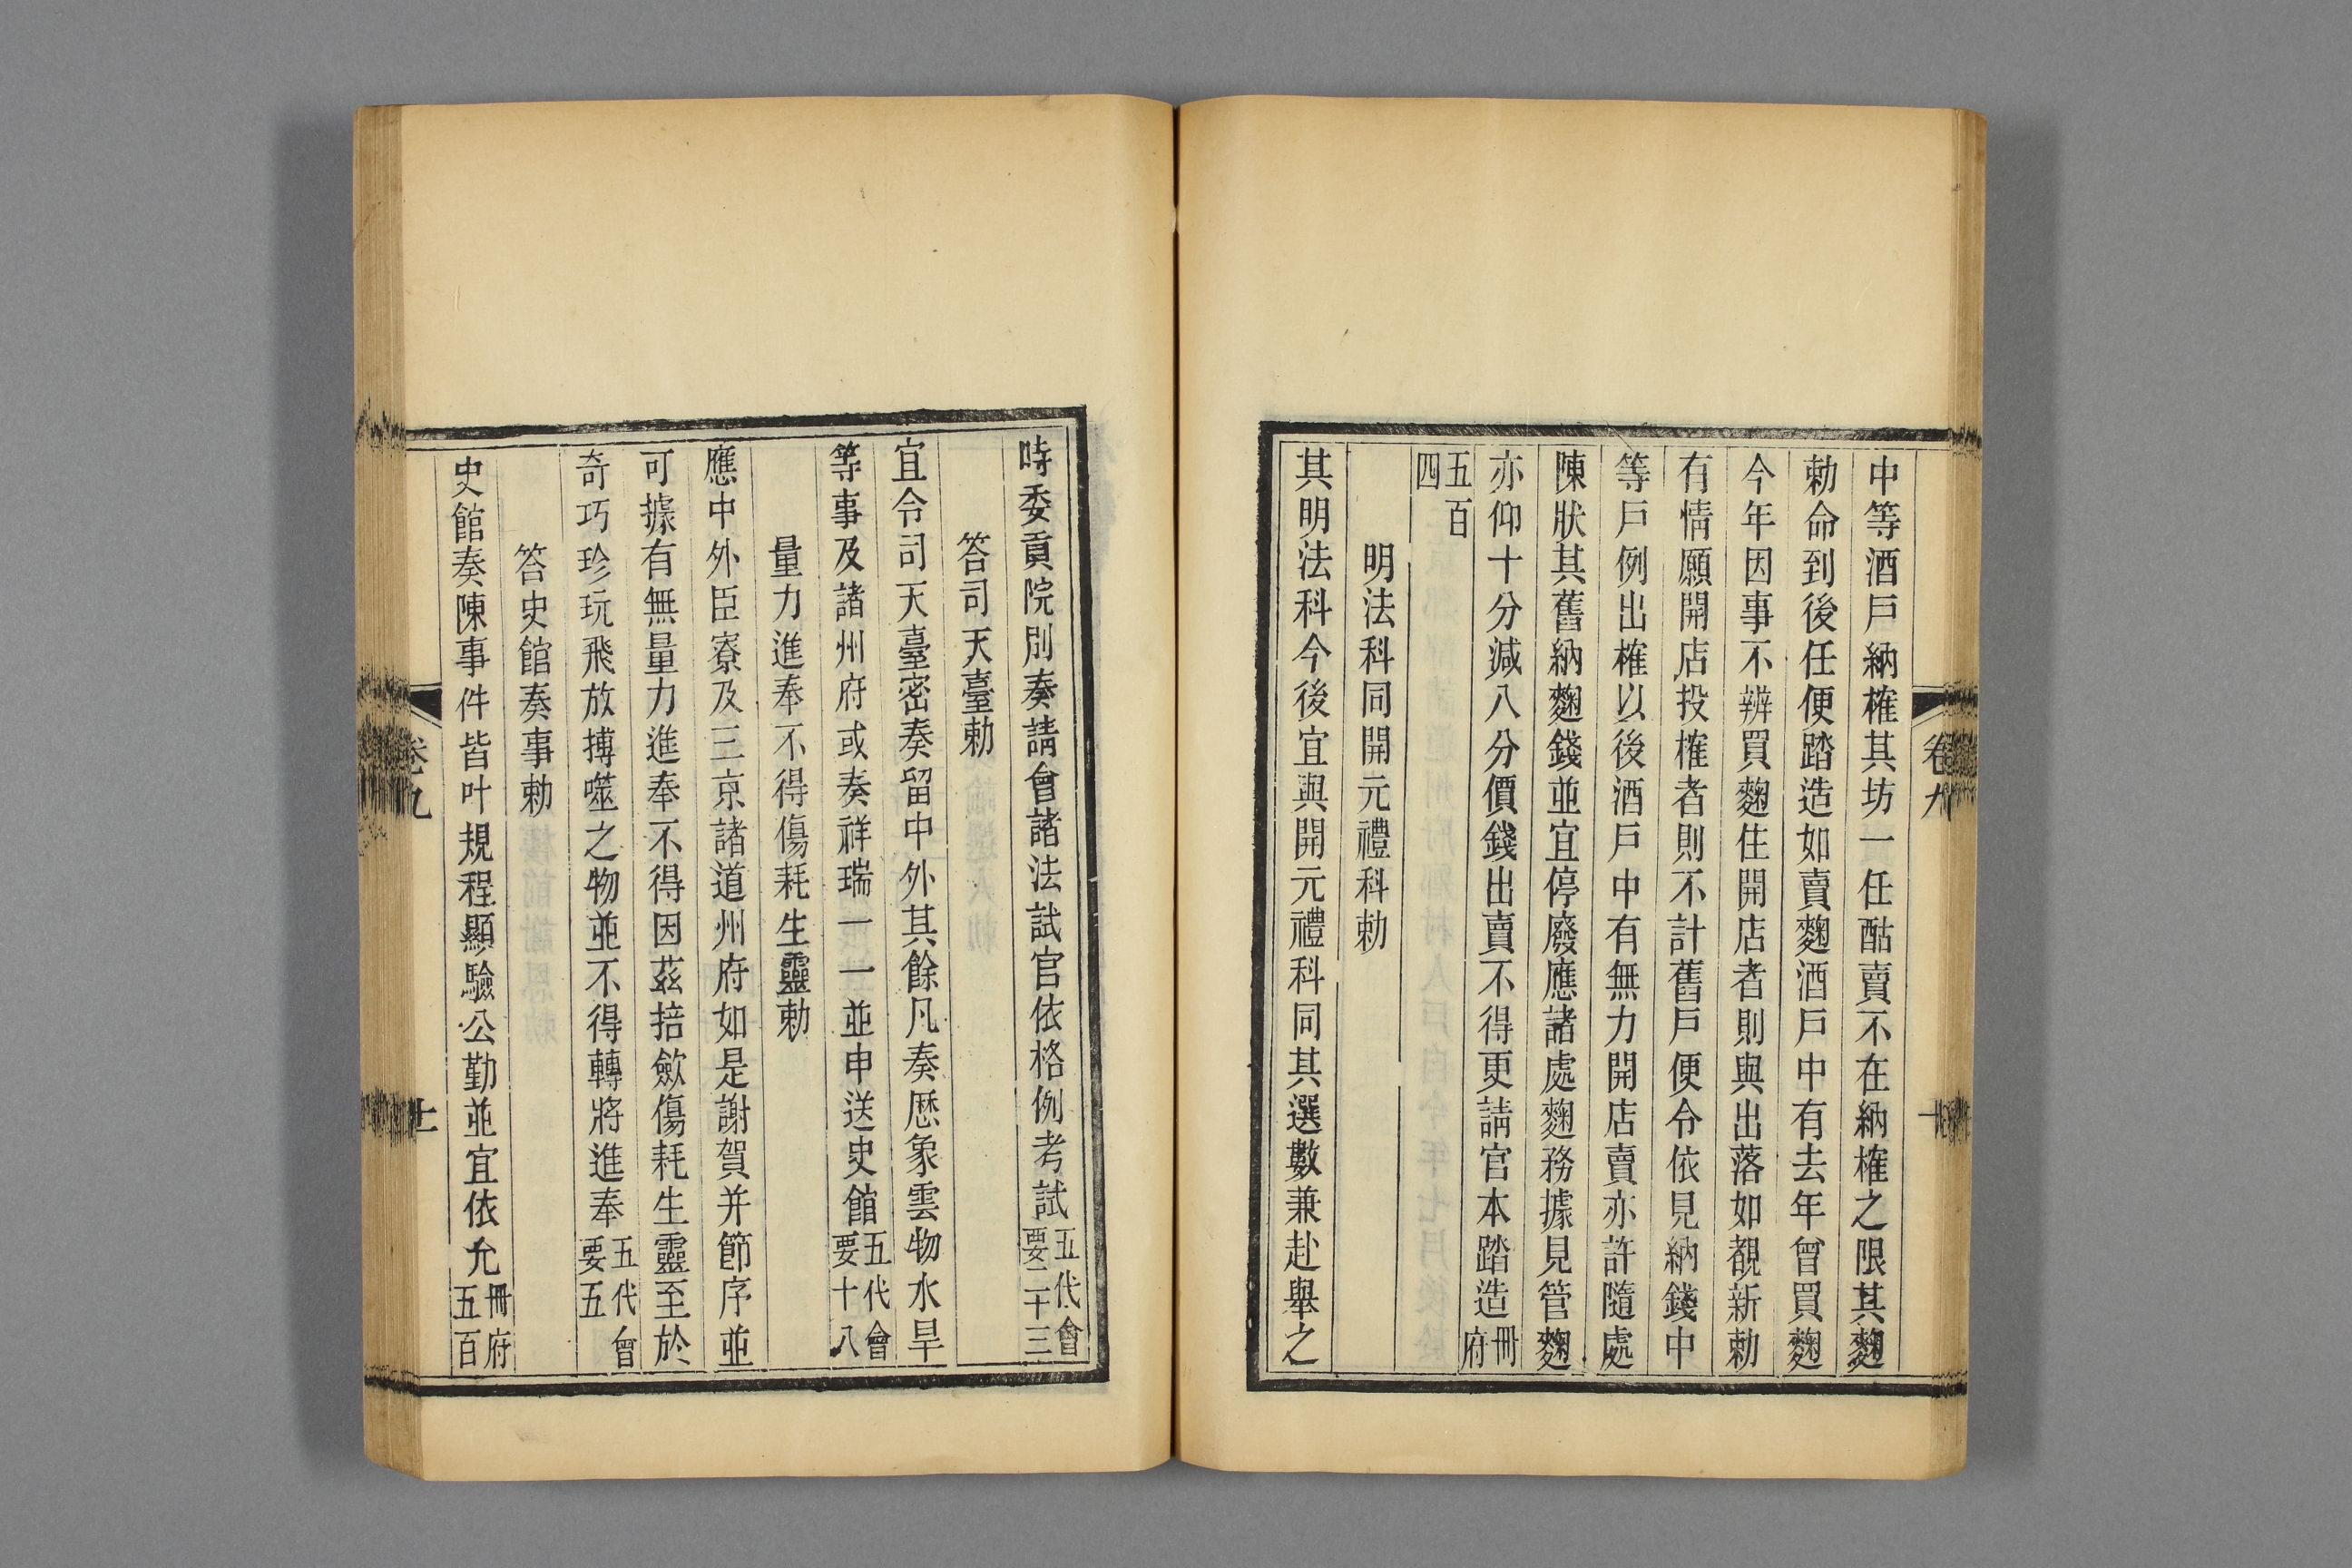 中等酒戶納榷其坊一任酤賣不在納榷之限其麴
勅命到後任便踏造如賣麴酒戶中有去年曾買麴
今年因事不辨買麴住開店者則與出落如覩新勅
有情願開店投榷者則不計舊戶便令依見納錢中
等戶例出榷以後酒戶中有無力開店賣亦許隨處
陳狀其舊納麴錢並宜停廢應諸處麴務據見管麴
亦仰十分減八分價錢出賣不得更請官本踏造冊府
五百四
明法科同開元禮科勅
其明法科今後宜與開元禮科同其選數兼赴舉之
卷九
時委貢院別奏請會諸法試官依格例考試五代會要二十三
答司天臺勅
宜令司天臺密奏留中外其餘凡奏厯象雲物水旱
等事及諸州府或奏祥瑞一一並申送史館五代會要十八
量力進奉不得傷耗生靈勅
應中外臣寮及三京諸道州府如是謝賀并節序並
可據有無量力進奉不得因茲掊歛傷耗生靈至於
奇巧珍玩飛放搏噬之物並不得轉將進奉五代會要五
答史館奏事勅
史館奏陳事件皆叶規程顯驗公勤並宜依允冊府五百
卷九